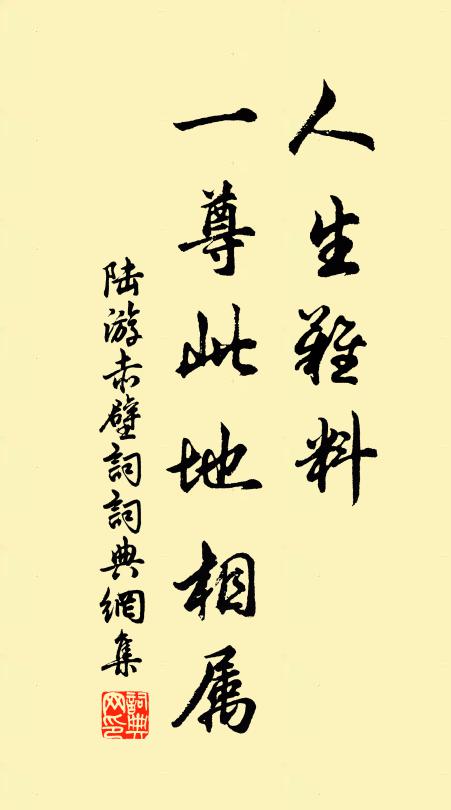 人生難料
一尊此地相属
陆游赤壁詞詞典網集
詞典
网印